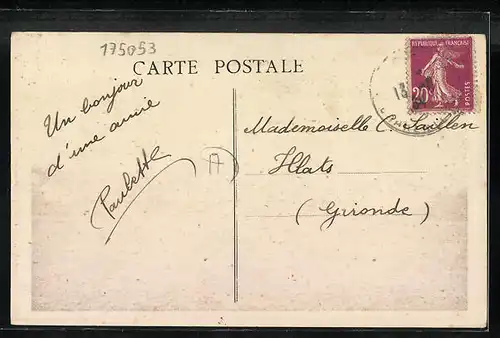 175053
CARTE POSTALE
REPUBLIQUE FRANÇAISE
20c
POSTES
13
Un bonjour
d'une amie
Paulette
A
Mademoiselle C. Saillen
Illats
(Gironde)